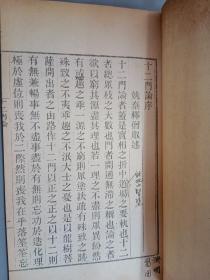 十二門論序
姚秦釋僧叡述
十二門論者蓋是實相之折中道場之要軌也十二
者總眾枝之大數也門者開通無滯之稱也論之者
欲以窮其源盡其理也若一理之不盡則眾異紛然
有惑趣之乖一源之不窮則眾塗扶疏有殊致之跡
殊致之不夷乖趣之不泯大士之憂也是以龍樹菩
薩開出者之由路作十二門以正之正之以十二則
有無兼暢事無不盡事盡於有無則忘功於造化理
極於虛位則喪我於二際然則喪我在乎落筌筌忘